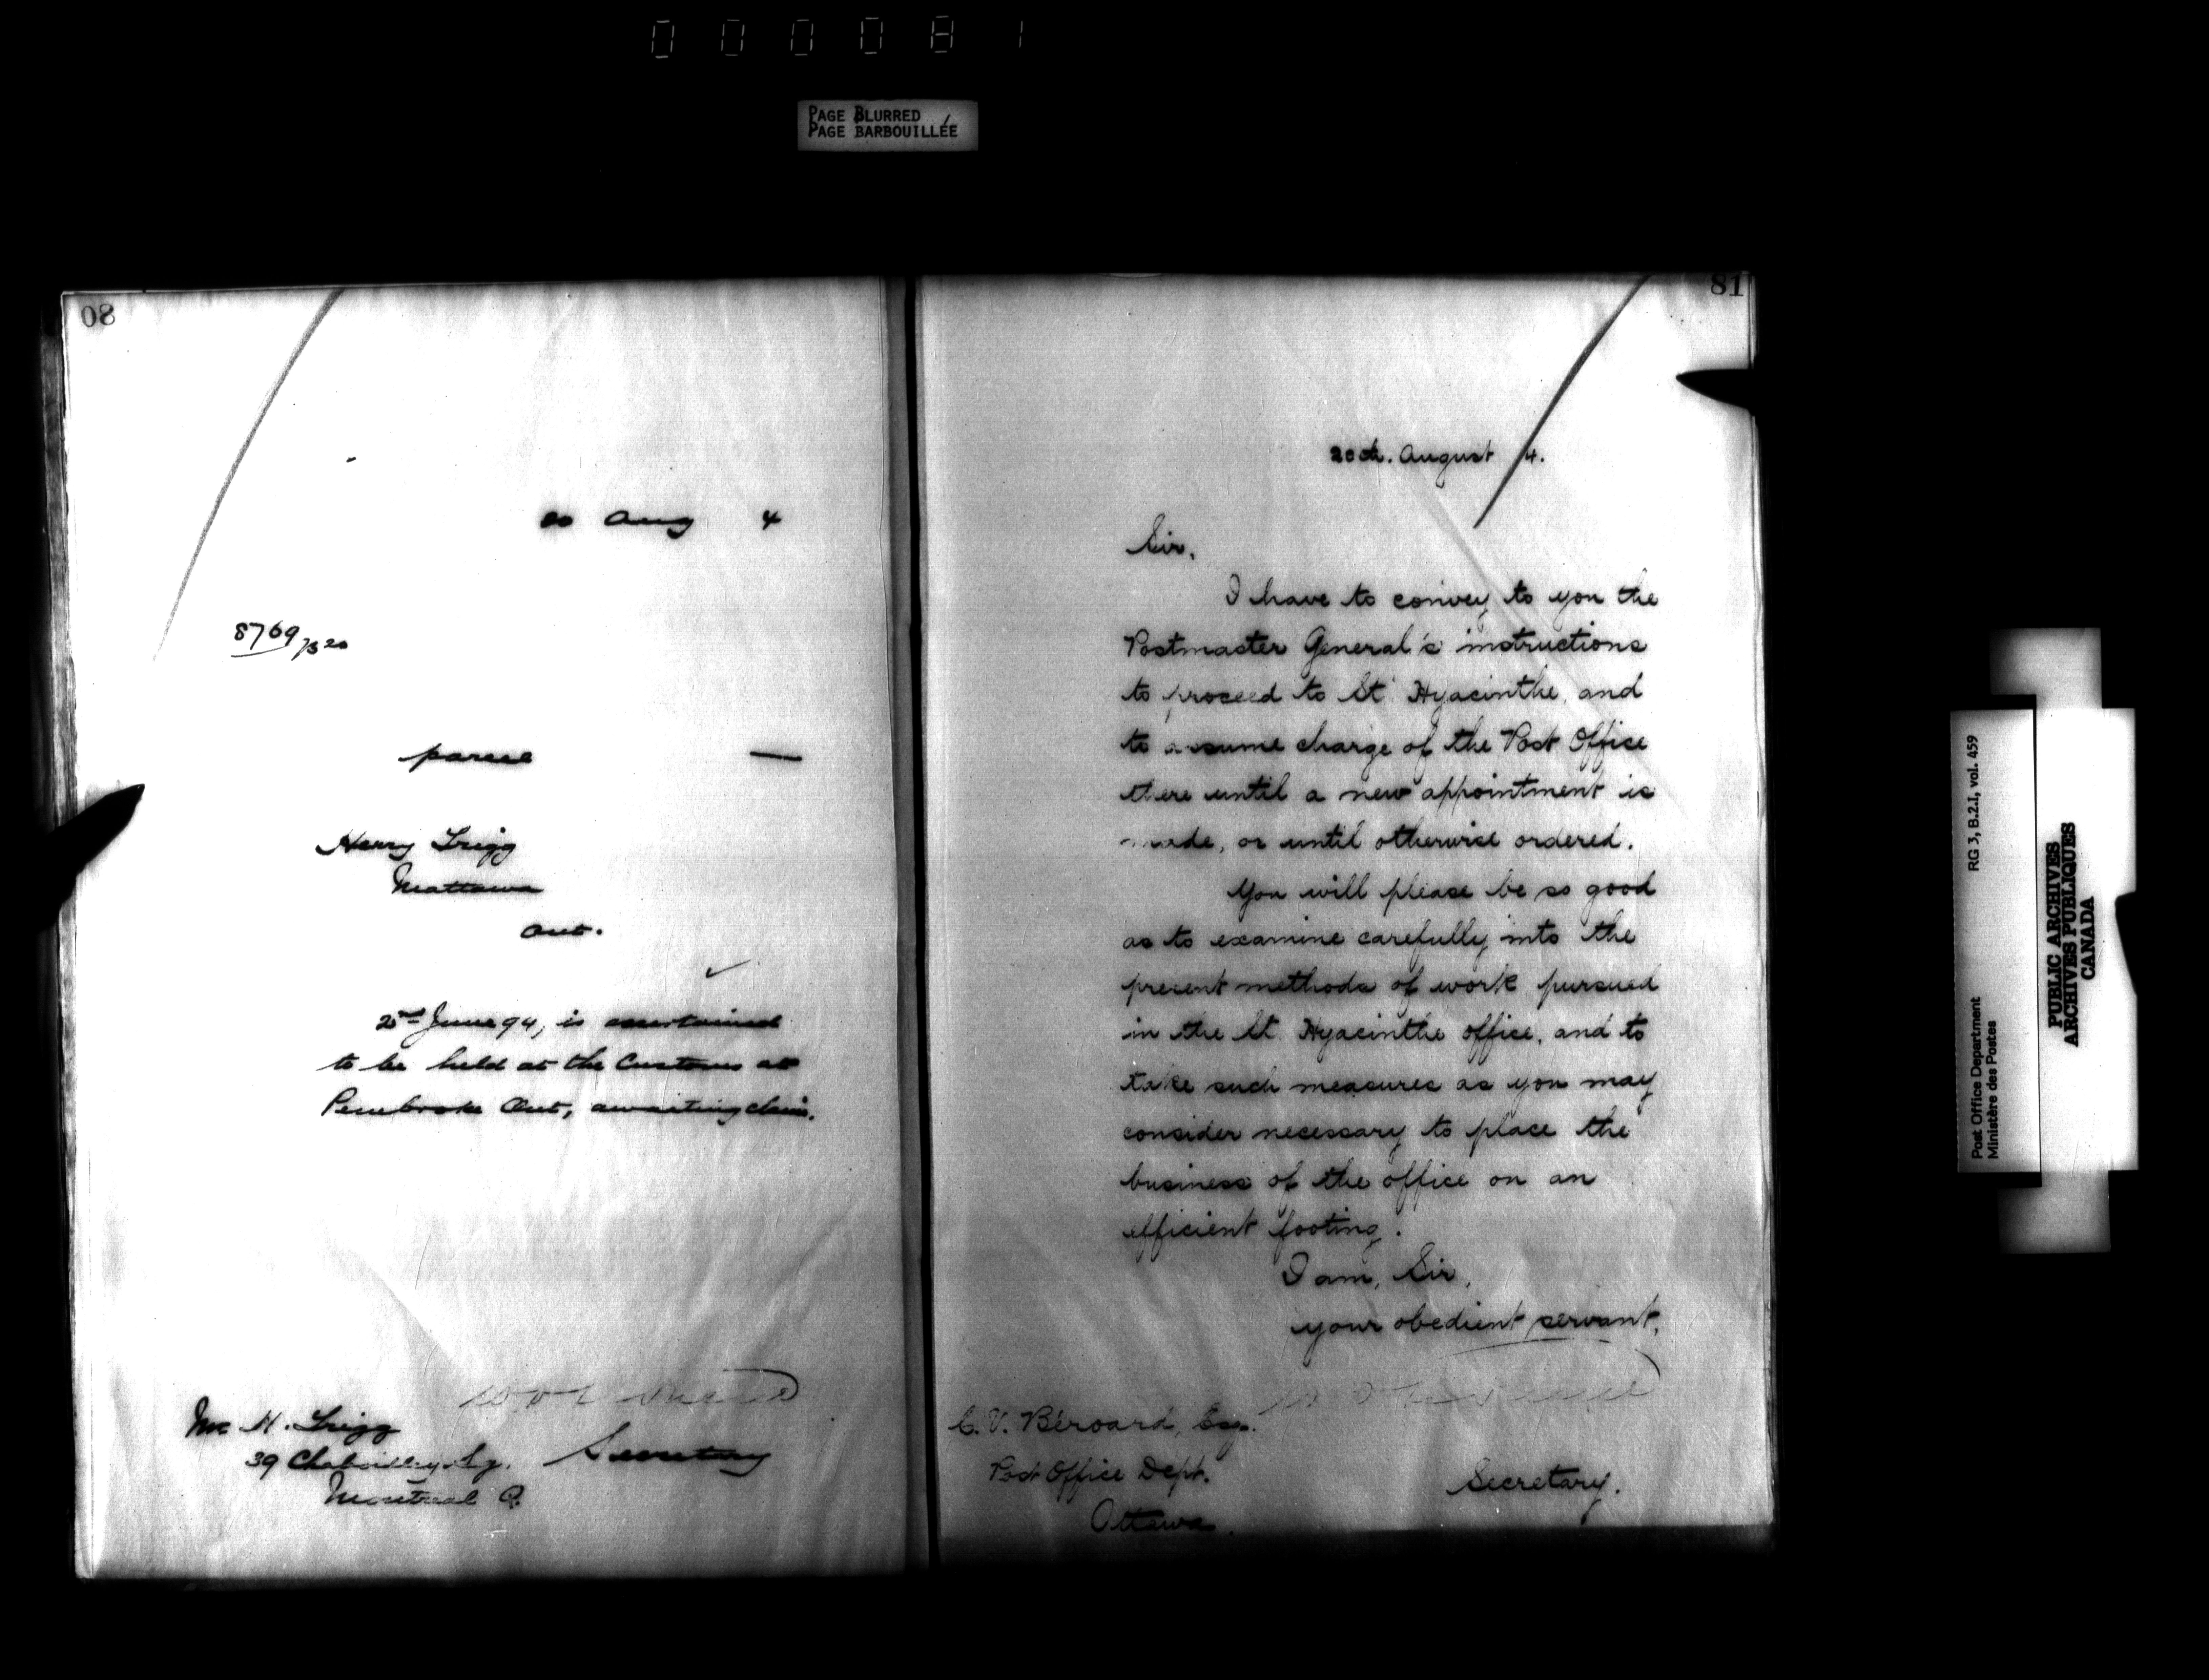 000081
PAGE BLURRED
PAGE BARBOUILLÉE
80
20 Aug 4
8769
parcel —
Henry Trigg
Mattawa
Ont.
2nd June 94, is ascertained
to be held at the Customs at
Pembroke Ont, awaiting claim.
Mr H. Trigg
39 Chaboillez Sq.
Secretary
Montreal Q.
81
20th. August 4.
Sir,
I have to convey to you the
Postmaster General's instructions
to proceed to St. Hyacinthe, and
to assume charge of the Post Office
there until a new appointment is
made, or until otherwise ordered.
You will please be so good
as to examine carefully into the
present methods of work pursued
in the St. Hyacinthe office, and to
take such measures as you may
consider necessary to place the
business of the office on an
efficient footing.
I am, Sir,
your obedient servant,
C. V. Béroard, Esq.
Post Office Dept.
Secretary.
Ottawa.
Post Office Department RG 3, B.2.I, vol. 459
Ministère des Postes
PUBLIC ARCHIVES
ARCHIVES PUBLIQUES
CANADA